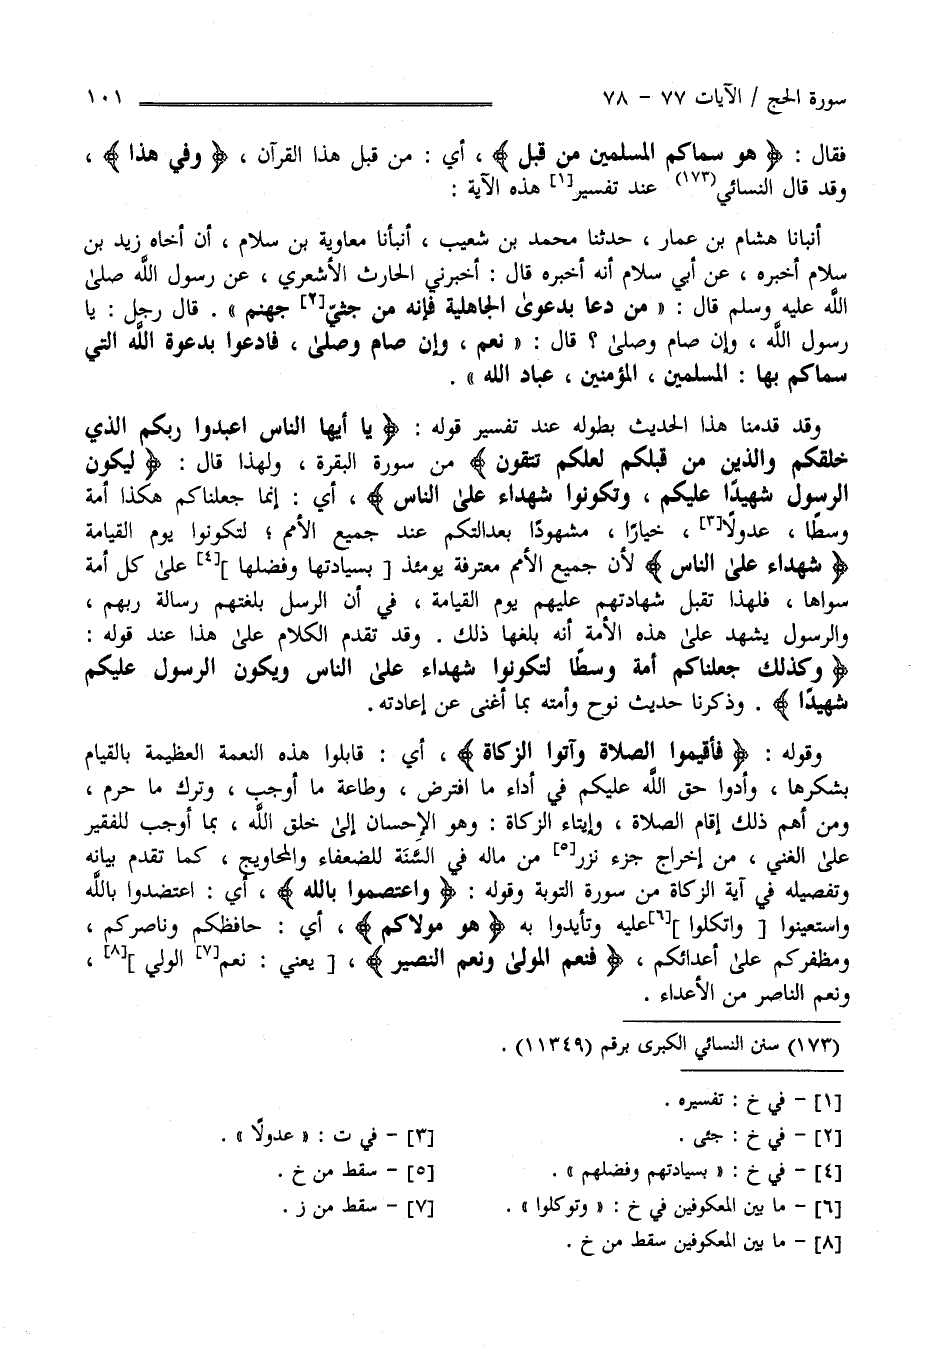 سورة الحج / الآيات ٧٧ - ٧٨ ١٠١
فقال : ﴿ هو سماكم المسلمين من قبل ﴾ ، أي : من قبل هذا القرآن ، ﴿ وفي هذا ﴾ ،
وقد قال النسائي(١٧٣) عند تفسير[١] هذه الآية :
أنبانا هشام بن عمار ، حدثنا محمد بن شعيب ، أنبأنا معاوية بن سلام ، أن أخاه زيد بن
سلام أخبره ، عن أبي سلام أنه أخبره قال : أخبرني الحارث الأشعري ، عن رسول اللَّه صلىٰ
اللَّه عليه وسلم قال : « من دعا بدعوىٰ الجاهلية فإنه من جثيّ[٢] جهنم » . قال رجل : يا
رسول اللَّه ، وإن صام وصلىٰ ؟ قال : « نعم ، وإن صام وصلىٰ ، فادعوا بدعوة الله التي
سماكم بها : المسلمين ، المؤمنين ، عباد الله » .
وقد قدمنا هذا الحديث بطوله عند تفسير قوله : ﴿ يا أيها الناس اعبدوا ربكم الذي
خلقكم والذين من قبلكم لعلكم تتقون ﴾ من سورة البقرة ، ولهذا قال : ﴿ ليكون
الرسول شهيدًا عليكم ، وتكونوا شهداء علىٰ الناس ﴾ ، أي : إنما جعلناكم هكذا أمة
وسطًا ، عدولًا[٣] ، خيارًا ، مشهودًا بعدالتكم عند جميع الأمم ؛ لتكونوا يوم القيامة
﴿ شهداء علىٰ الناس ﴾ لأن جميع الأمم معترفة يومئذ [ بسيادتها وفضلها ][٤] علىٰ كل أمة
سواها ، فلهذا تقبل شهادتهم عليهم يوم القيامة ، في أن الرسل بلغتهم رسالة ربهم ،
والرسول يشهد علىٰ هذه الأمة أنه بلغها ذلك . وقد تقدم الكلام علىٰ هذا عند قوله :
﴿ وكذلك جعلناكم أمة وسطًا لتكونوا شهداء علىٰ الناس ويكون الرسول عليكم
شهيدًا ﴾ . وذكرنا حديث نوح وأمته بما أغنى عن إعادته.
وقوله : ﴿ فأقيموا الصلاة وآتوا الزكاة ﴾ ، أي : قابلوا هذه النعمة العظيمة بالقيام
بشكرها ، وأدوا حق اللَّه عليكم في أداء ما افترض ، وطاعة ما أوجب ، وترك ما حرم ،
ومن أهم ذلك إقام الصلاة ، وإيتاء الزكاة : وهو الإحسان إلىٰ خلق اللَّه ، بما أوجب للفقير
علىٰ الغني ، من إخراج جزء نزر[٥] من ماله في السَّنَة للضعفاء والمحاويج ، كما تقدم بيانه
وتفصيله في آية الزكاة من سورة التوبة وقوله : ﴿ واعتصموا بالله ﴾ ، أي : اعتضدوا باللَّه
واستعينوا [ واتكلوا ][٦]عليه وتأيدوا به ﴿ هو مولاكم ﴾ ، أي : حافظكم وناصركم ،
ومظفركم علىٰ أعدائكم ، ﴿ فنعم المولىٰ ونعم النصير ﴾ ، [ يعني : نعم[٧] الولي ][٨] ،
ونعم الناصر من الأعداء .
(١٧٣) سنن النسائي الكبرى برقم (١١٣٤٩) .
[١] - في خ : تفسيره .
[٢] - في خ : جئى . [٣] - في ت : « عدولًا » .
[٤] - في خ : « بسيادتهم وفضلهم » . [٥] - سقط من خ .
[٦] - ما بين المعكوفين في خ : « وتوكلوا » . [٧] - سقط من ز .
[٨] - ما بين المعكوفين سقط من خ .